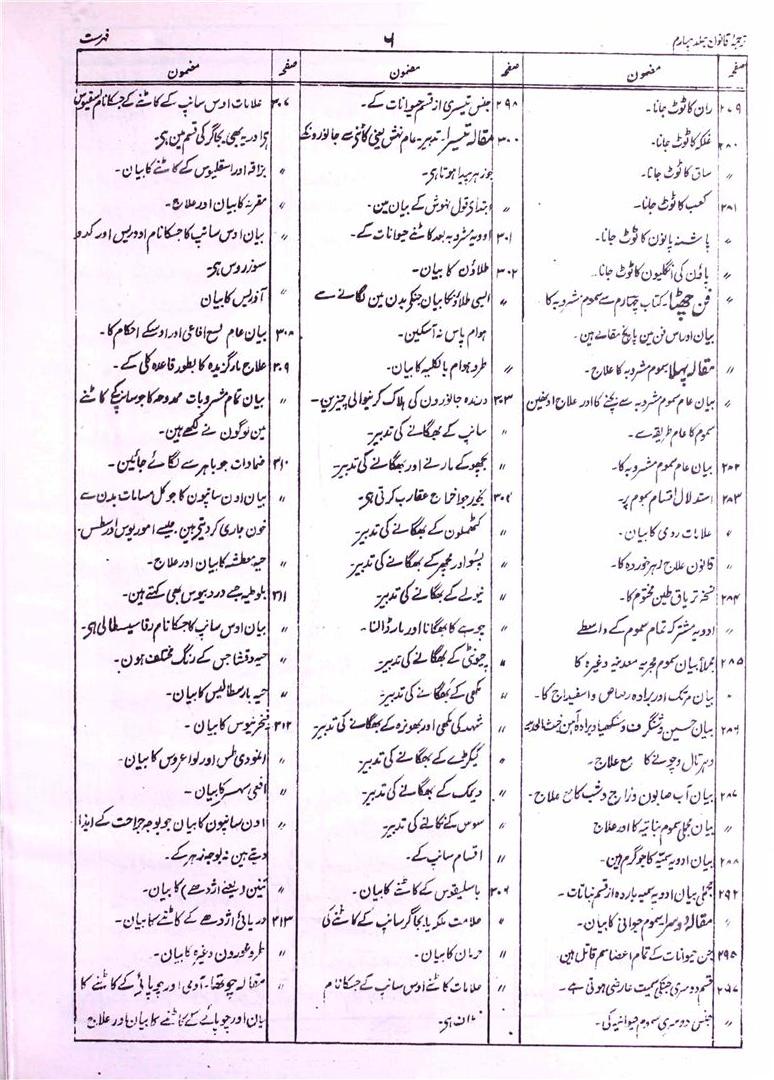 ترجمۂ قانون جلد چہارم
۶
فہرست
صفحہ مضمون
۲۷۹ ران کا ٹوٹ جانا۔
۲۸۰ فلکہ کا ٹوٹ جانا۔
〃 ساق کا ٹوٹ جانا۔
۲۸۱ کعب کا ٹوٹ جانا۔
〃 پاشنہ پانوں کا ٹوٹ جانا۔
〃 پاؤن کی انگلیون کا ٹوٹ جانا۔
〃 فن چھٹا۔ کتاب چہارم سے سموم مشروبہ کا
بیان اور اس فن مین پانچ مقالے ہین۔
〃 مقالہ پہلا سموم مشروبہ کا علاج۔
〃 بیان عام سموم مشروبہ سے بچنے کا اور علاج اونھین
سموم کا عام طریقے سے۔
۲۸۲ بیان عام سموم مشروبہ کا۔
۲۸۳ استدلال اقسام سموم پر۔
〃 علامات ردی کا بیان۔
〃 قانون علاج زہر خوردہ کا۔
۲۸۴ نسخہ تریاق طین مختوم کا۔
〃 ادویہ مشترکہ تمام سموم کے واسطے
۲۸۵ مجملاً بیان سموم حجریہ معدنیہ وغیرہ کا
〃 بیان مرتک اور برادہ رصاص و اسفیداج کا۔
۲۸۶ بیان جبسین و شنگرف و سنکھیا و برادہ آہن خبث الحدید
و ہرتال و چونے کا مع علاج۔
۲۸۷ بیان آب صابون و زاج و شب کا مع علاج۔
〃 بیان مجملی سموم نباتیہ کا اور علاج
۲۸۸ بیان ادویہ سمیّہ کا جو گرم ہین۔
۲۹۲ مجملی بیان ادویہ سمیہ باردہ از قسم نباتات۔
〃 مقالہ دوسرا سموم حیوانی کا بیان۔
۲۹۵ جن حیوانات کے تمام اعضا سم قاتل ہین
۲۹۷ قسم دوسری جنکی سمیت عارضی ہوتی ہے۔
〃 جنس دوسری سموم حیوانیہ کی۔
صفحہ مضمون
۲۹۸ جنس تیسری از قسم حیوانات کے۔
۳۰۰ مقالہ تیسرا۔ تدبیر عام نہش یعنی کاٹنے سے جانورونکے
جو زہر پیدا ہوتا ہی۔
〃 ابتدای قول نہوش کے بیان مین۔
۳۰۱ ادویہ مشروبہ بعد کاٹنے حیوانات کے۔
۳۰۲ طلاؤن کا بیان۔
〃 ایسی طلاؤنکا بیان جنکے بدن مین لگانے سے
ہوام پاس نہ آسکین۔
〃 طرد ہوام بالکلیہ کا بیان۔
۳۰۳ درندہ جانورون کی ہلاک کرنیوالی چیزین۔
〃 سانپ کے بھگانے کی تدبیر۔
〃 بچھو کے مارنے اور بھگانے کی تدبیر۔
۳۰۴ بخور جو اخراج عقارب کرتی ہی۔
〃 کھٹملون کے بھگانے کی تدبیر۔
〃 پسو اور مچھر کے بھگانے کی تدبیر۔
〃 نیولے کے بھگانے کی تدبیر
〃 چوہے کا بھگانا اور مار ڈالنا۔
〃 چیونٹی کے بھگانے کی تدبیر
〃 مکھی کے بھگانے کی تدبیر۔
〃 شہد کی مکھی اور بھونرہ کے بھگانے کی تدبیر۔
〃 کیکڑے کے بھگانے کی تدبیر۔
〃 دیمک کے بھگانے کی تدبیر
〃 سوس کے نکالنے کی تدبیر
〃 اقسام سانپ کے۔
۳۰۶ باسلیقوس کے کاٹنے کا بیان۔
〃 علامت ملکہ یا بجاگر سانپ کے کاٹنے کی
〃 حرمان کا بیان۔
〃 علامات کاٹنے اوس سانپ کے جسکا نام
ہی۔
صفحہ مضمون
۳۰۷ علامات اوس سانپ کے کاٹنے کے جسکا نام
ہی اور یہ بھی بجاگر کی قسم مین ہی۔
〃 بزاقہ اور اسقلیوس کے کاٹنے کا بیان۔
〃 مقرنہ کا بیان اور علاج۔
〃 بیان اوس سانپ کا جسکا نام اودریس اور کدو
سوزروس ہی۔
〃 آذریس کا بیان
۳۰۸ بیان عام لسع افاعی اور اوسکے احکام کا۔
۳۰۹ علاج مار گزیدہ کا بطور قاعدہ کلی کے۔
〃 بیان تمام مشروبات ممدوحہ کا جو سانپکے کاٹنے
مین لوگون نے لکھے ہین۔
۳۱۰ ضمادات جو باہر سے لگائے جائین۔
〃 بیان اون سانپون کا جو کل مسامات بدن سے
خون جاری کر دیتے ہین۔ جیسے امور یوس اور سطس۔
〃 حیہ معطشہ کا بیان اور علاج۔
۳۱۱ بلوطیہ جسے درد بیوس بھی کہتے ہین۔
〃 بیان اوس سانپ کا جسکا نام رقاسیسطالی ہی۔
〃 حیہ رقشا جس کے رنگ مختلف ہون۔
〃 حیہ بارسطالیس کا بیان۔
۳۱۲ فنجرنیوس کا بیان۔
〃 اغودی طس اور لوا عروس کا بیان۔
〃 افعی سہر کا بیان۔
〃 اون سانپون کا بیان جو بوجہ جراحت کے ایذا
دیتے ہین نہ بوجہ زہر کے۔
〃 تنین (یعنے اژدھے) کا بیان۔
۳۱۳ دریائی اژدھے کے کاٹنے کا بیان۔
طروغورون وغیرہ کا بیان۔
〃 مقالہ چوتھا۔ آدمی اور چوپائی کے کاٹنے کا
بیان اور چوپائے کے کاٹنے کا بیان اور علاج